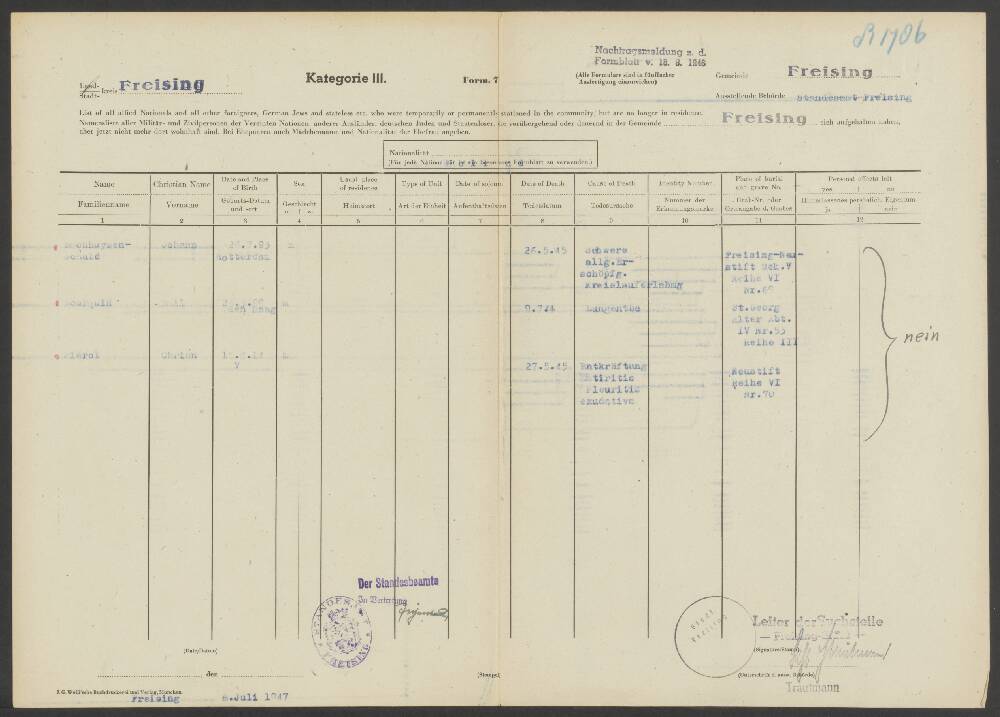 R 1786
Nachtragsmeldung z. d.
Formblatt v. 18. 9. 1946
Land-
Stadt- kreis Freising
Kategorie III.
Form. 7
(Alle Formulare sind in fünffacher
Ausfertigung einzureichen)
Gemeinde Freising
Ausstellende Behörde Standesamt Freising
List of all allied Nationals and all other foreigners, German Jews and stateless etc. who were temporarily or permanently stationed in the community, but are no longer in residence.
Namensliste aller Militär- und Zivilpersonen der Vereinten Nationen, anderer Ausländer, deutschen Juden und Staatenloser, die vorübergehend oder dauernd in der Gemeinde Freising sich aufgehalten haben,
aber jetzt nicht mehr dort wohnhaft sind. Bei Ehepaaren auch Mädchenname und Nationalität der Ehefrau angeben.
Nationalität
(Für jede Nation ist ein besonderes Formblatt zu verwenden.)
Name
Familienname
1
Christian Name
Vorname
2
Date and Place
of Birth
Geburts-Datum
und -ort
3
Sex
Geschlecht
4
Usual place
of residence
Heimatort
5
Type of Unit
Art der Einheit
6
Date of sojourn
Aufenthaltszeiten
7
Date of Death
Todesdatum
8
Cause of Death
Todesursache
9
Identity Number
Nummer der
Erkennungsmarke
10
Place of burial
and grave No.
Grab-Nr. oder
Ortsangabe d. Grabes
11
Personal effects left
yes no
Hinterlassenes persönlich. Eigentum
ja nein
12
Johann
Rotterdam
m
26.5.45
Schwere
allg.Er-
schöpfg.
Kreislauferlahmg
Freising-Neu-
stift Sek.V
Reihe VI
Nr.69
Den Haag
m
Lungentbc
St.Georg
alter Abt.
IV Nr.53
Reihe III
nein
27.5.45
Entkräftung
Pleuritis
exudativa
Neustift
Reihe VI
Nr.70
Der Standesbeamte
In Vertretung
STANDESAMT
FREISING
Leiter der Suchstelle
Freising
(Signature/Stamp)
(Unterschrift d. ausst. Behörde)
Trautmann
(Date/Datum)
den
(Stempel)
J. G. Weiß'sche Buchdruckerei und Verlag, München.
Freising 8.Juli 1947